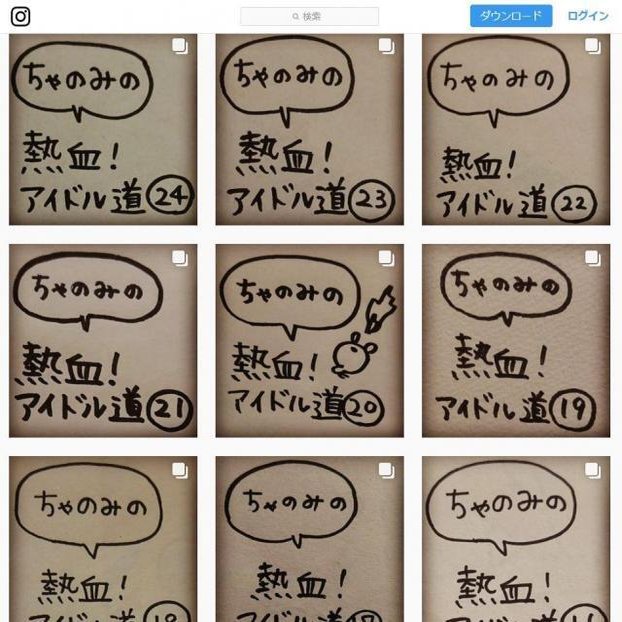 検索
ダウンロード
ログイン
ちゃのみの
熱血!
アイドル道 24
ちゃのみの
熱血!
アイドル道 23
ちゃのみの
熱血!
アイドル道 22
ちゃのみの
熱血!
アイドル道 21
ちゃのみの
熱血!
アイドル道 20
ちゃのみの
熱血!
アイドル道 19
ちゃのみの
熱血!
アイドル道 18
ちゃのみの
熱血!
アイドル道 17
ちゃのみの
熱血!
アイドル道